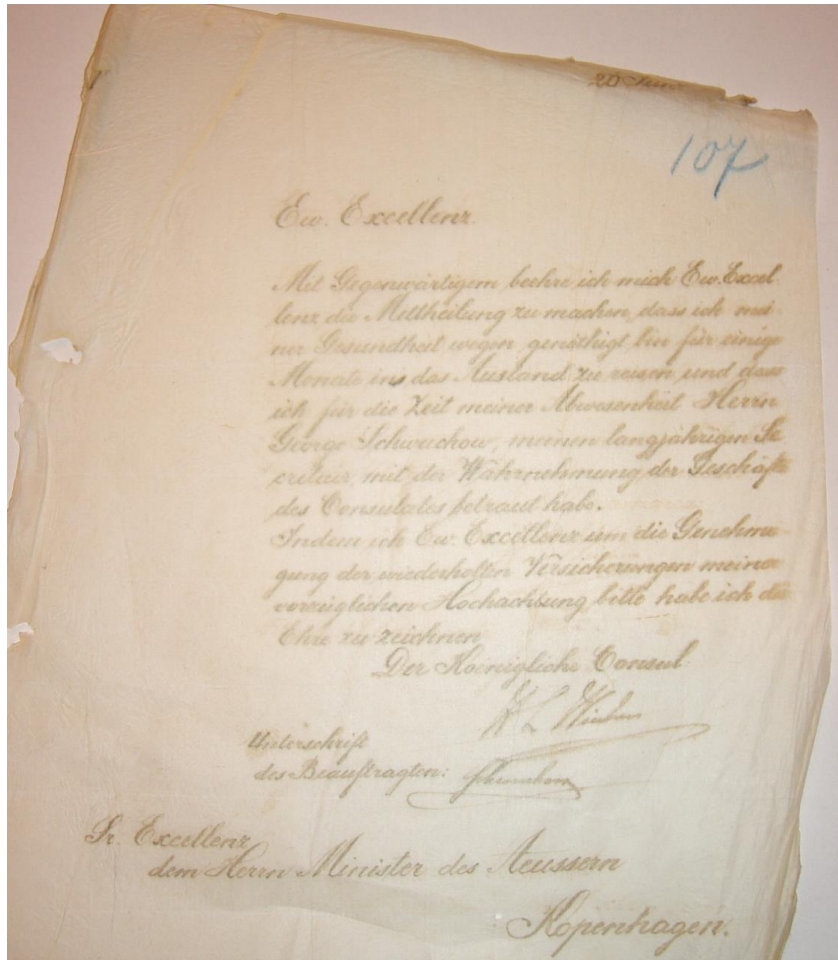 20 Juni
107
Ew. Excellenz.
Mit Gegenwärtigem beehre ich mich Ew. Excel-
lenz die Mittheilung zu machen, dass ich mei-
ner Gesundheit wegen genöthigt bin für einige
Monate ins das Ausland zu reisen und dass
ich für die Zeit meiner Abwesenheit Herrn
George Schwuchow, meinen langjährigen Se-
cretair, mit der Wahrnehmung der Geschäfte
des Consulates betraut habe.
Indem ich Ew. Excellenz um die Genehmi-
gung der wiederholten Versicherungen meiner
vorzüglichen Hochachtung bitte habe ich die
Ehre zu zeichnen
Der Koenigliche Consul
Unterschrift
des Beauftragten:
Sr. Excellenz
dem Herrn Minister des Aeussern
Kopenhagen.